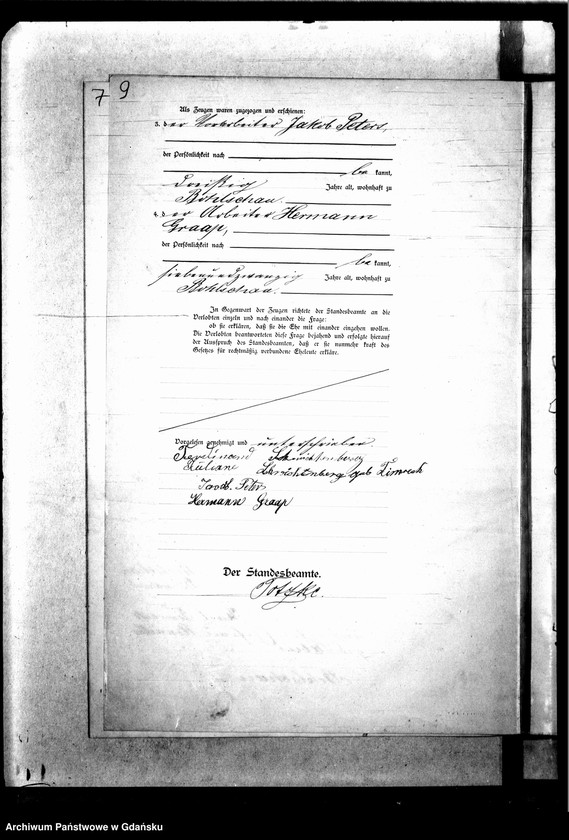 7 9
Als Zeugen waren zugezogen und erschienen:
3. der Vorarbeiter Jakob Peters,
der Persönlichkeit nach
be kannt,
dreißig Jahre alt, wohnhaft zu
Bohlschau.
4. der Arbeiter Hermann
Graap,
der Persönlichkeit nach
be kannt,
siebenundzwanzig Jahre alt, wohnhaft zu
Bohlschau.
In Gegenwart der Zeugen richtete der Standesbeamte an die
Verlobten einzeln und nach einander die Frage:
ob sie erklären, daß sie die Ehe mit einander eingehen wollen.
Die Verlobten beantworteten diese Frage bejahend und erfolgte hierauf
der Ausspruch des Standesbeamten, daß er sie nunmehr kraft des
Gesetzes für rechtmäßig verbundene Eheleute erkläre.
Vorgelesen, genehmigt und unterschrieben
Juliane geb
Jacob. Peters
Hermann Graap
Der Standesbeamte.
Archiwum Państwowe w Gdańsku